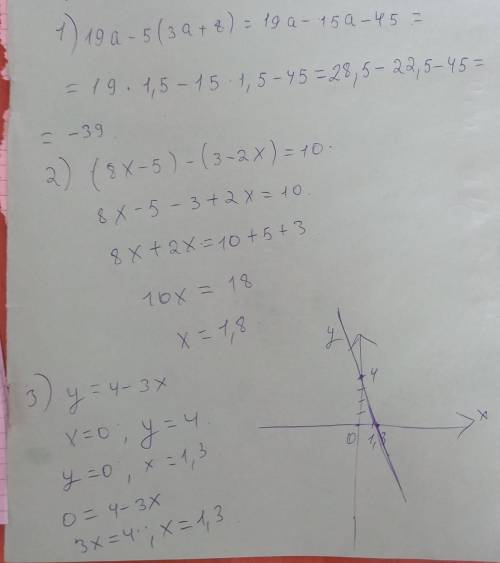 1) 19a - 5(3a + 8) = 19a - 15a - 45 =
= 19 · 1,5 - 15 · 1,5 - 45 = 28,5 - 22,5 - 45 =
= -39
2) (8x - 5) - (3 - 2x) = 10.
8x - 5 - 3 + 2x = 10.
8x + 2x = 10 + 5 + 3
10x = 18
x = 1,8
3) y = 4 - 3x
x = 0; y = 4.
y = 0; x = 1,3
0 = 4 - 3x
3x = 4; x = 1,3
y
4
x
0 1,3